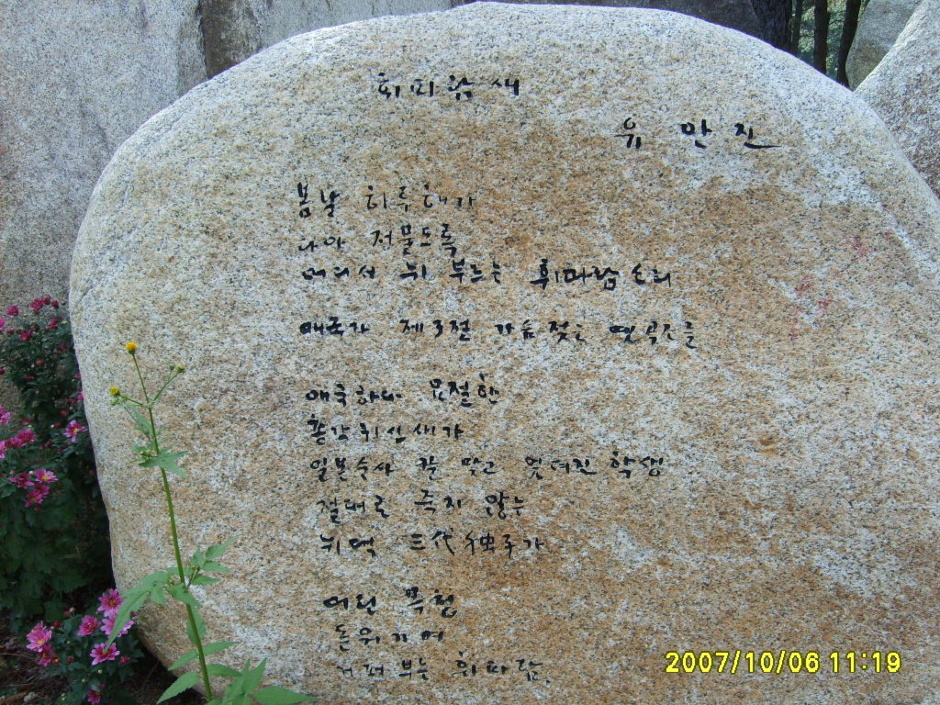 휘파람새
유 안 진
봄날 하루해가
나아 저물도록
어디서 뉘 부르는 휘파람 소리
애국가 제3절 가슴 젖는 옛 곡조를
애국하다 요절한
총각귀신 새가
일본순사 칼 맞고 엎어진 학생
절대로 죽지 않는
뉘댁 三代独子가
어린 목청
돋워가며
부는 휘파람
2007/10/06 11:19